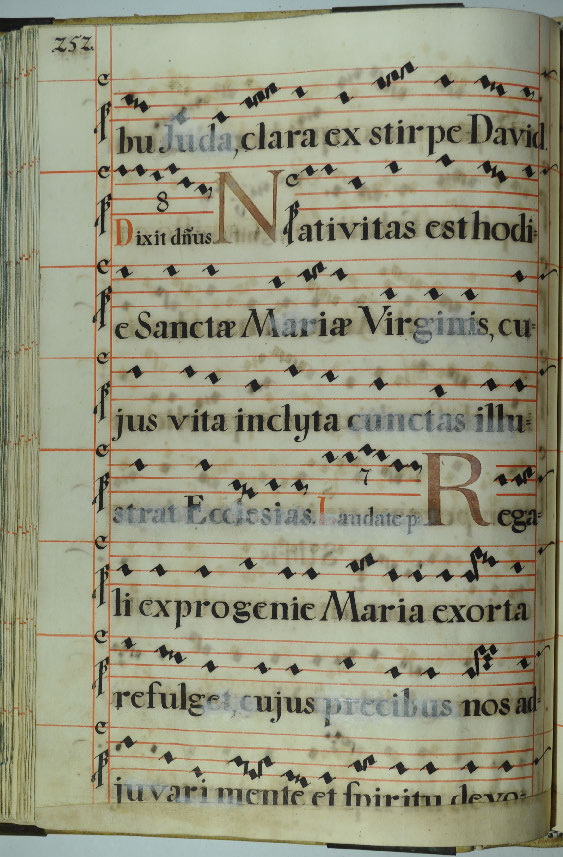 252.
bu Juda, clara ex stirpe David.
8
Dixit dñus. Nativitas est hodi-
e Sanctæ Mariæ Virginis, cu-
jus vita inclyta cunctas illu-
strat Ecclesias. Laudate p. Rega-
7
li ex progenie Maria exorta
refulget, cujus precibus nos ad-
juvari mente et spiritu devo-